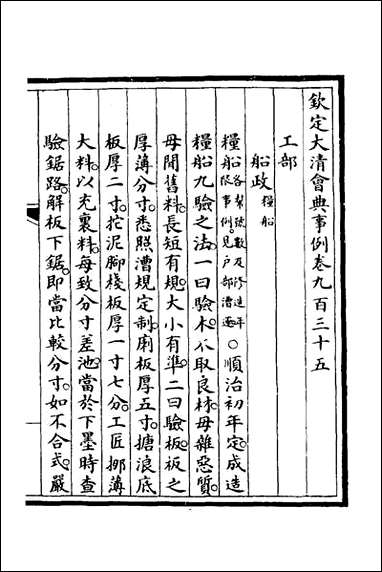 欽定大清會典事例卷九百三十五
工部
船政糧船
糧船各幫號數及修造年限事例見戶部漕運○順治初年定成造
糧船九驗之法一曰驗木必取良材毋雜惡質
毋閒舊料長短有規大小有準二曰驗板板之
厚薄分寸悉照漕規定制廂板厚五寸搪浪底
板厚二寸拕泥腳棧板厚一寸七分工匠挪薄
大料以充裏料每致分寸差池當於下墨時查
驗鋸路解板下鋸即當比較分寸如不合式嚴